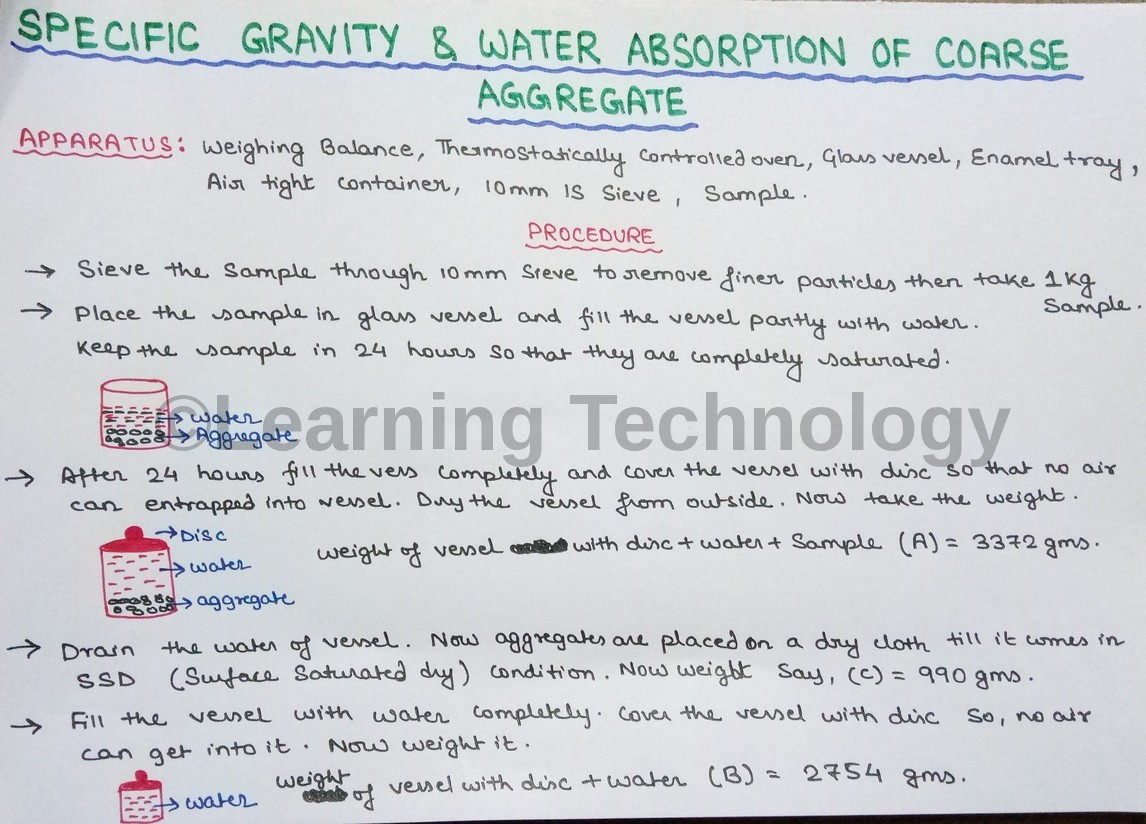 SPECIFIC GRAVITY & WATER ABSORPTION OF COARSE
AGGREGATE
APPARATUS: Weighing Balance, Thermostatically controlled oven, Glass vessel, Enamel tray,
Air tight container, 10mm IS Sieve, Sample.
PROCEDURE
→ Sieve the Sample through 10mm Sieve to remove finer particles then take 1kg
Sample.
→ Place the sample in glass vessel and fill the vessel partly with water.
Keep the sample in 24 hours so that they are completely saturated.
→ water
→ Aggregate
©Learning Technology
→ After 24 hours fill the vess completely and cover the vessel with disc so that no air
can entrapped into vessel. Dry the vessel from outside. Now take the weight.
→ Disc
weight of vessel with disc + water + Sample (A) = 3372 gms.
→ water
→ aggregate
→ Drain the water of vessel. Now aggregates are placed on a dry cloth till it comes in
SSD (Surface Saturated dry) condition. Now weight say, (C) = 990 gms.
→ Fill the vessel with water completely. Cover the vessel with disc so, no air
can get into it. Now weight it.
weight of vessel with disc + water (B) = 2754 gms.
→ water